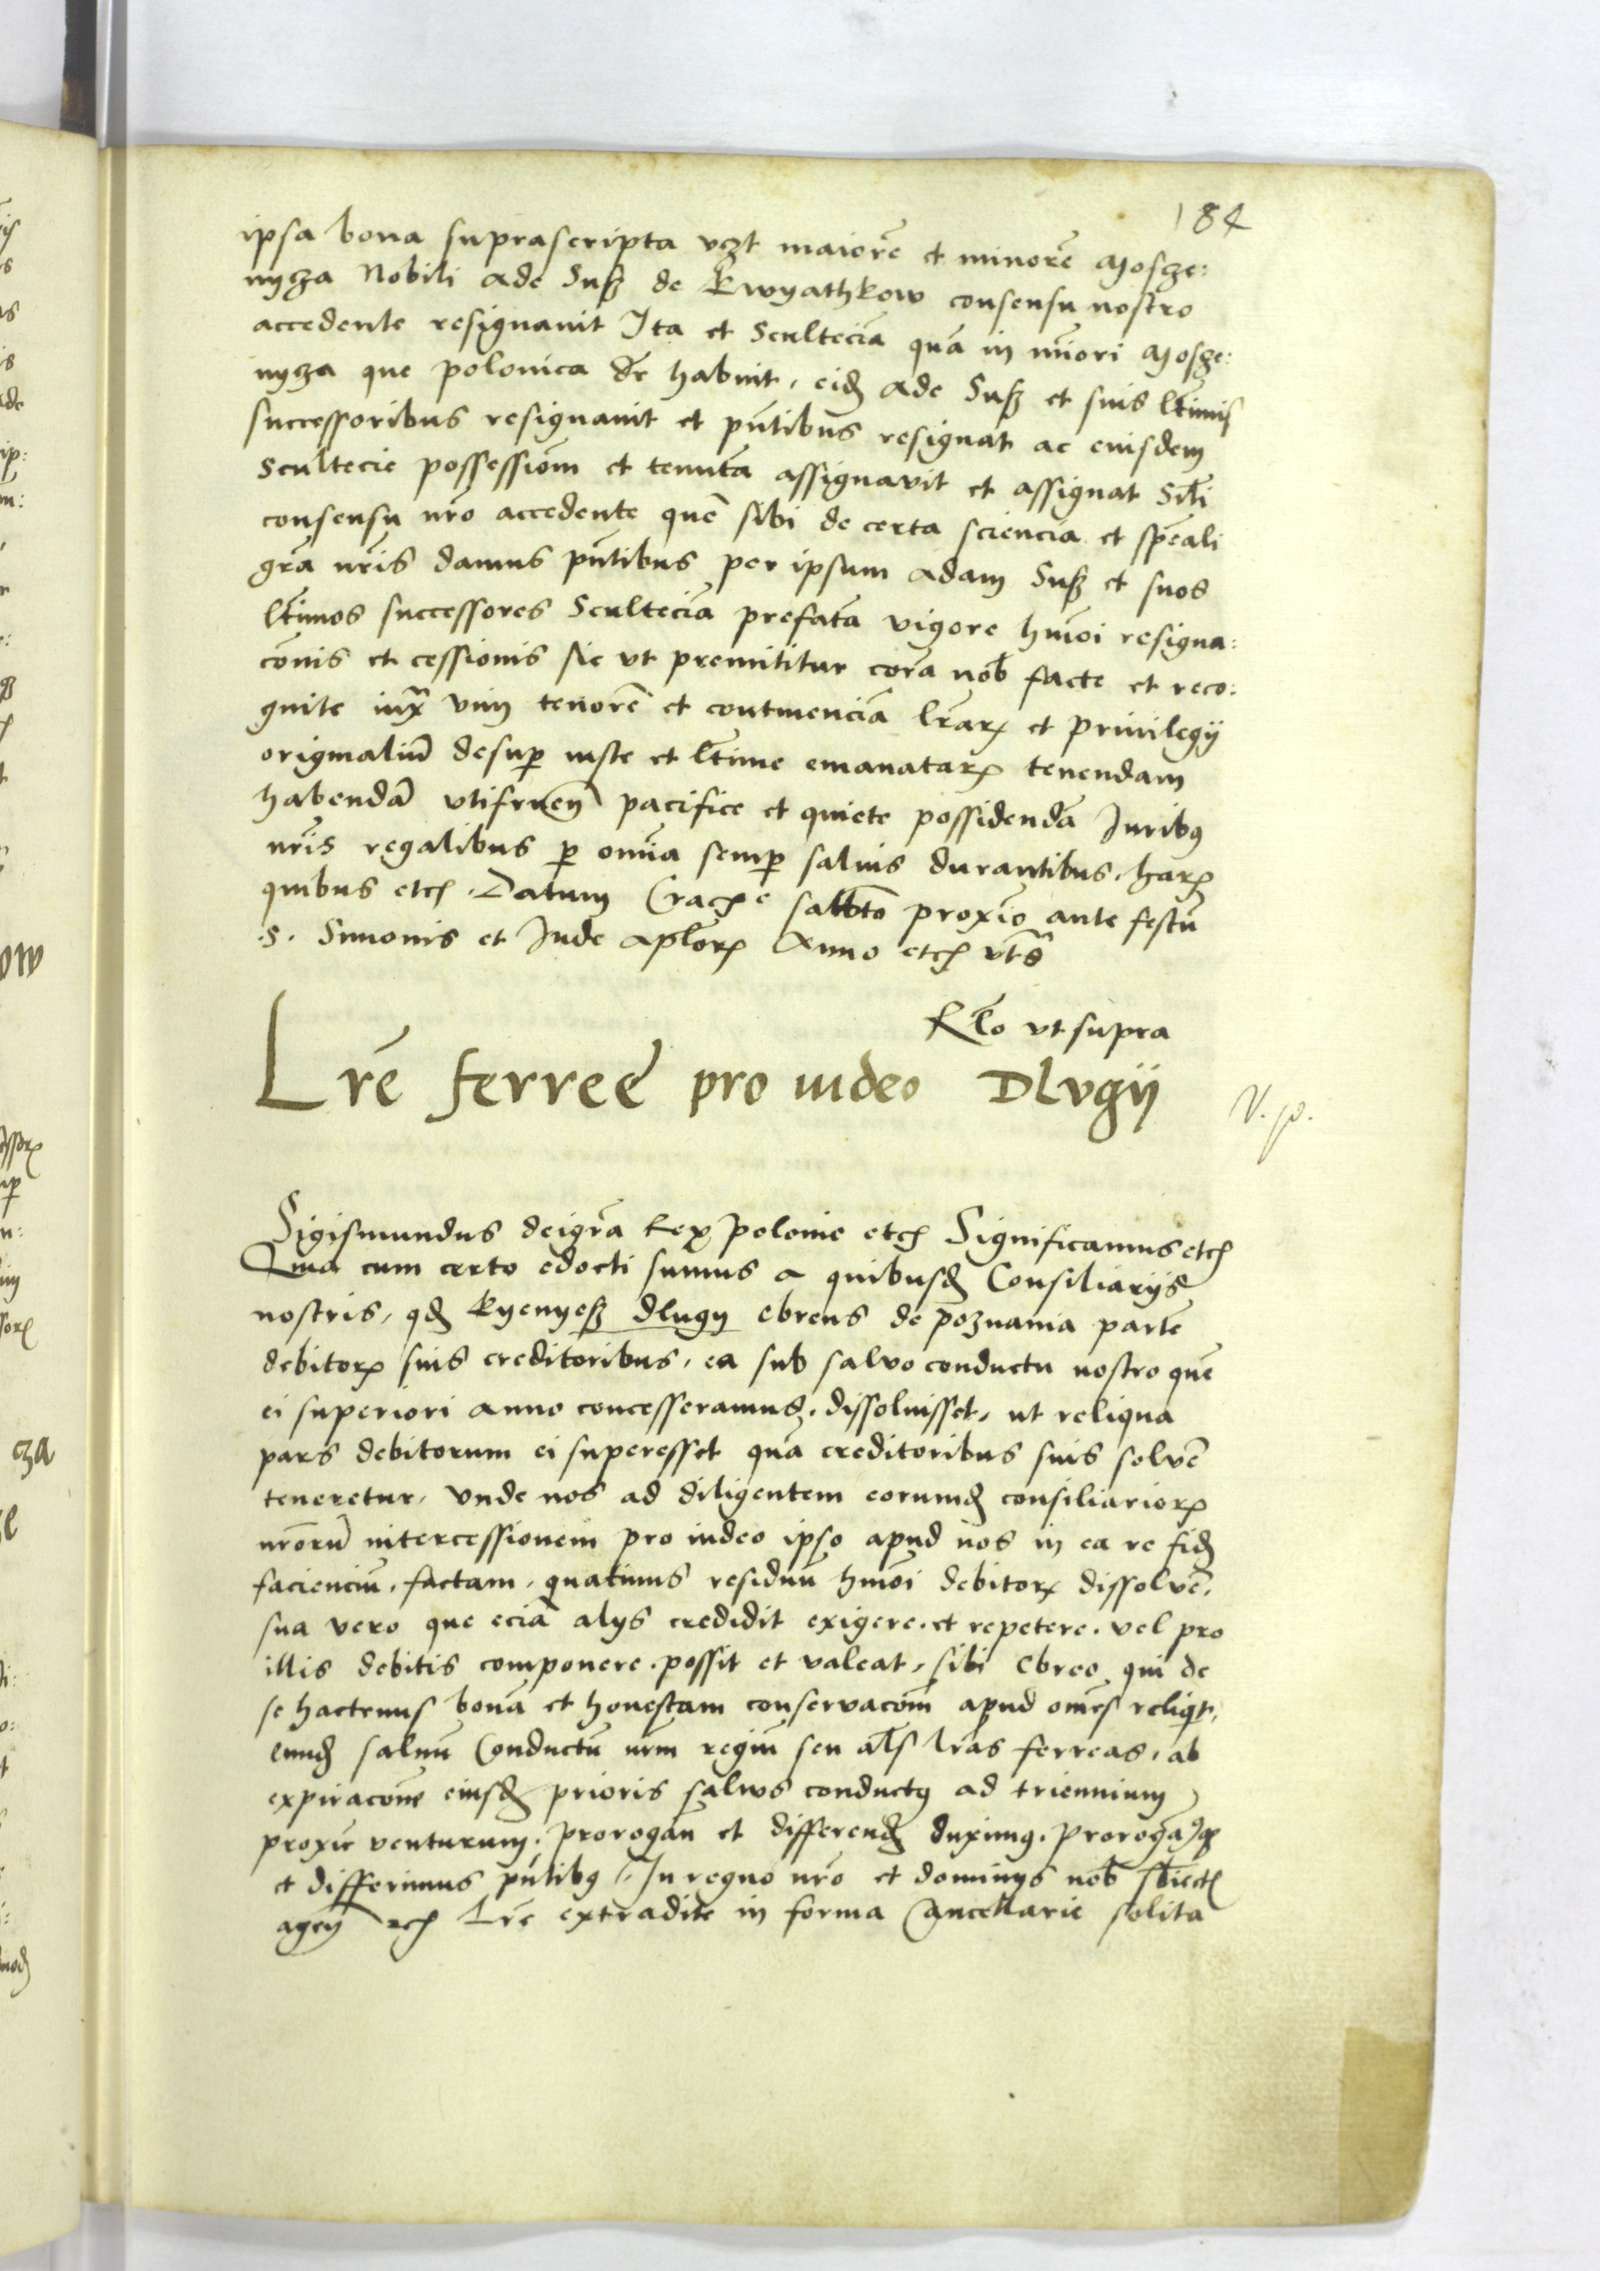 184
ipsa bona suprascripta vczt maiorē et minorē Moscze:
nycza Nobili Ade Suß de Kwyathkow consensu nostro
accedente resignauit Ita et Sculteciā quā in miōri Moscze:
nycza que polonica dr̄ habuit, eid̄ Ade Suß et suis ltīmis
successoribus resignauit et pn̄tibus resignat ac eiusdem
Scultecie possessiōm et tenutā assignavit et assignat Sil̄i
consensu nr̄o accedente quē sibi de certa sciencia et spēali
gr̄a nr̄is damus pn̄tibus per ipsum Adam Suß et suos
ltīmos successores Scultecia prefatā vigore hmōi resigna:
cōnis et cessionis sic vt premittitur corā nob̄ facte et reco:
gnite iuxᵃ vim tenorē et continenciā lr̄arꝝ et priuilegÿ
originaliū desuꝑ iuste et ltīme emanatarꝝ tenendam
habendā vtifruen̄ pacifice et quiete possidendā Iuribꝰ
nr̄is regalibus ꝑ omīa semꝑ saluis durantibus. harꝝ
quibus etcꝫ. Datum Cracꝫᵉ sabbto proxīo ante festū
.S. Simonis et Iude aplorꝝ Anno etcꝫ vtsᵃ
Rlō vt supra
Lrē ferreē pro iudeo Dlvgÿ
V. p.
Sigismundus deigrā Rex polonie etcꝫ Significamus etcꝫ
Quia cum certo edocti sumus a quibusd̄ Consiliarÿs
nostris, qd̄ Kyenyeß dlugy ebreus de poznania partē
debitorꝝ suis creditoribus, ea sub salvo conductu nostro quē
ei superiori anno concesseramus, dissoluisset, ut reliqua
pars debitorum ei superesset quā creditoribus suis solvē
teneretur, vnde nos ad diligentem eorumd̄ consiliariorꝝ
nrōrū intercessionem pro iudeo ipso apud nos in ea re fid̄
faciencіū, factam, quatinus residuū hmōi debitorꝝ dissolvē,
sua vero que eciā alÿs credidit exigere. et repetere. vel pro
illis debitis componere. possit et valeat, sibi Ebreo, qui de
se hactenus bonā et honestam conservacōm apud omēs reliqit,
eund̄ saluū Conductū nrm̄ regiū seu als̄ lrās ferreas, ab
expiracōne eiusd̄ prioris salvos conductꝰ ad triennium
proxīe venturum. prorogan̄ et differend̄ duximꝰ. prorogamꝰqꝫ
et differimus pn̄tibꝰ. In regno nrō et dominÿs nob̄ sbiectꝫ
agen̄ etcꝫ Lrē extradite in forma Cancellarie solita